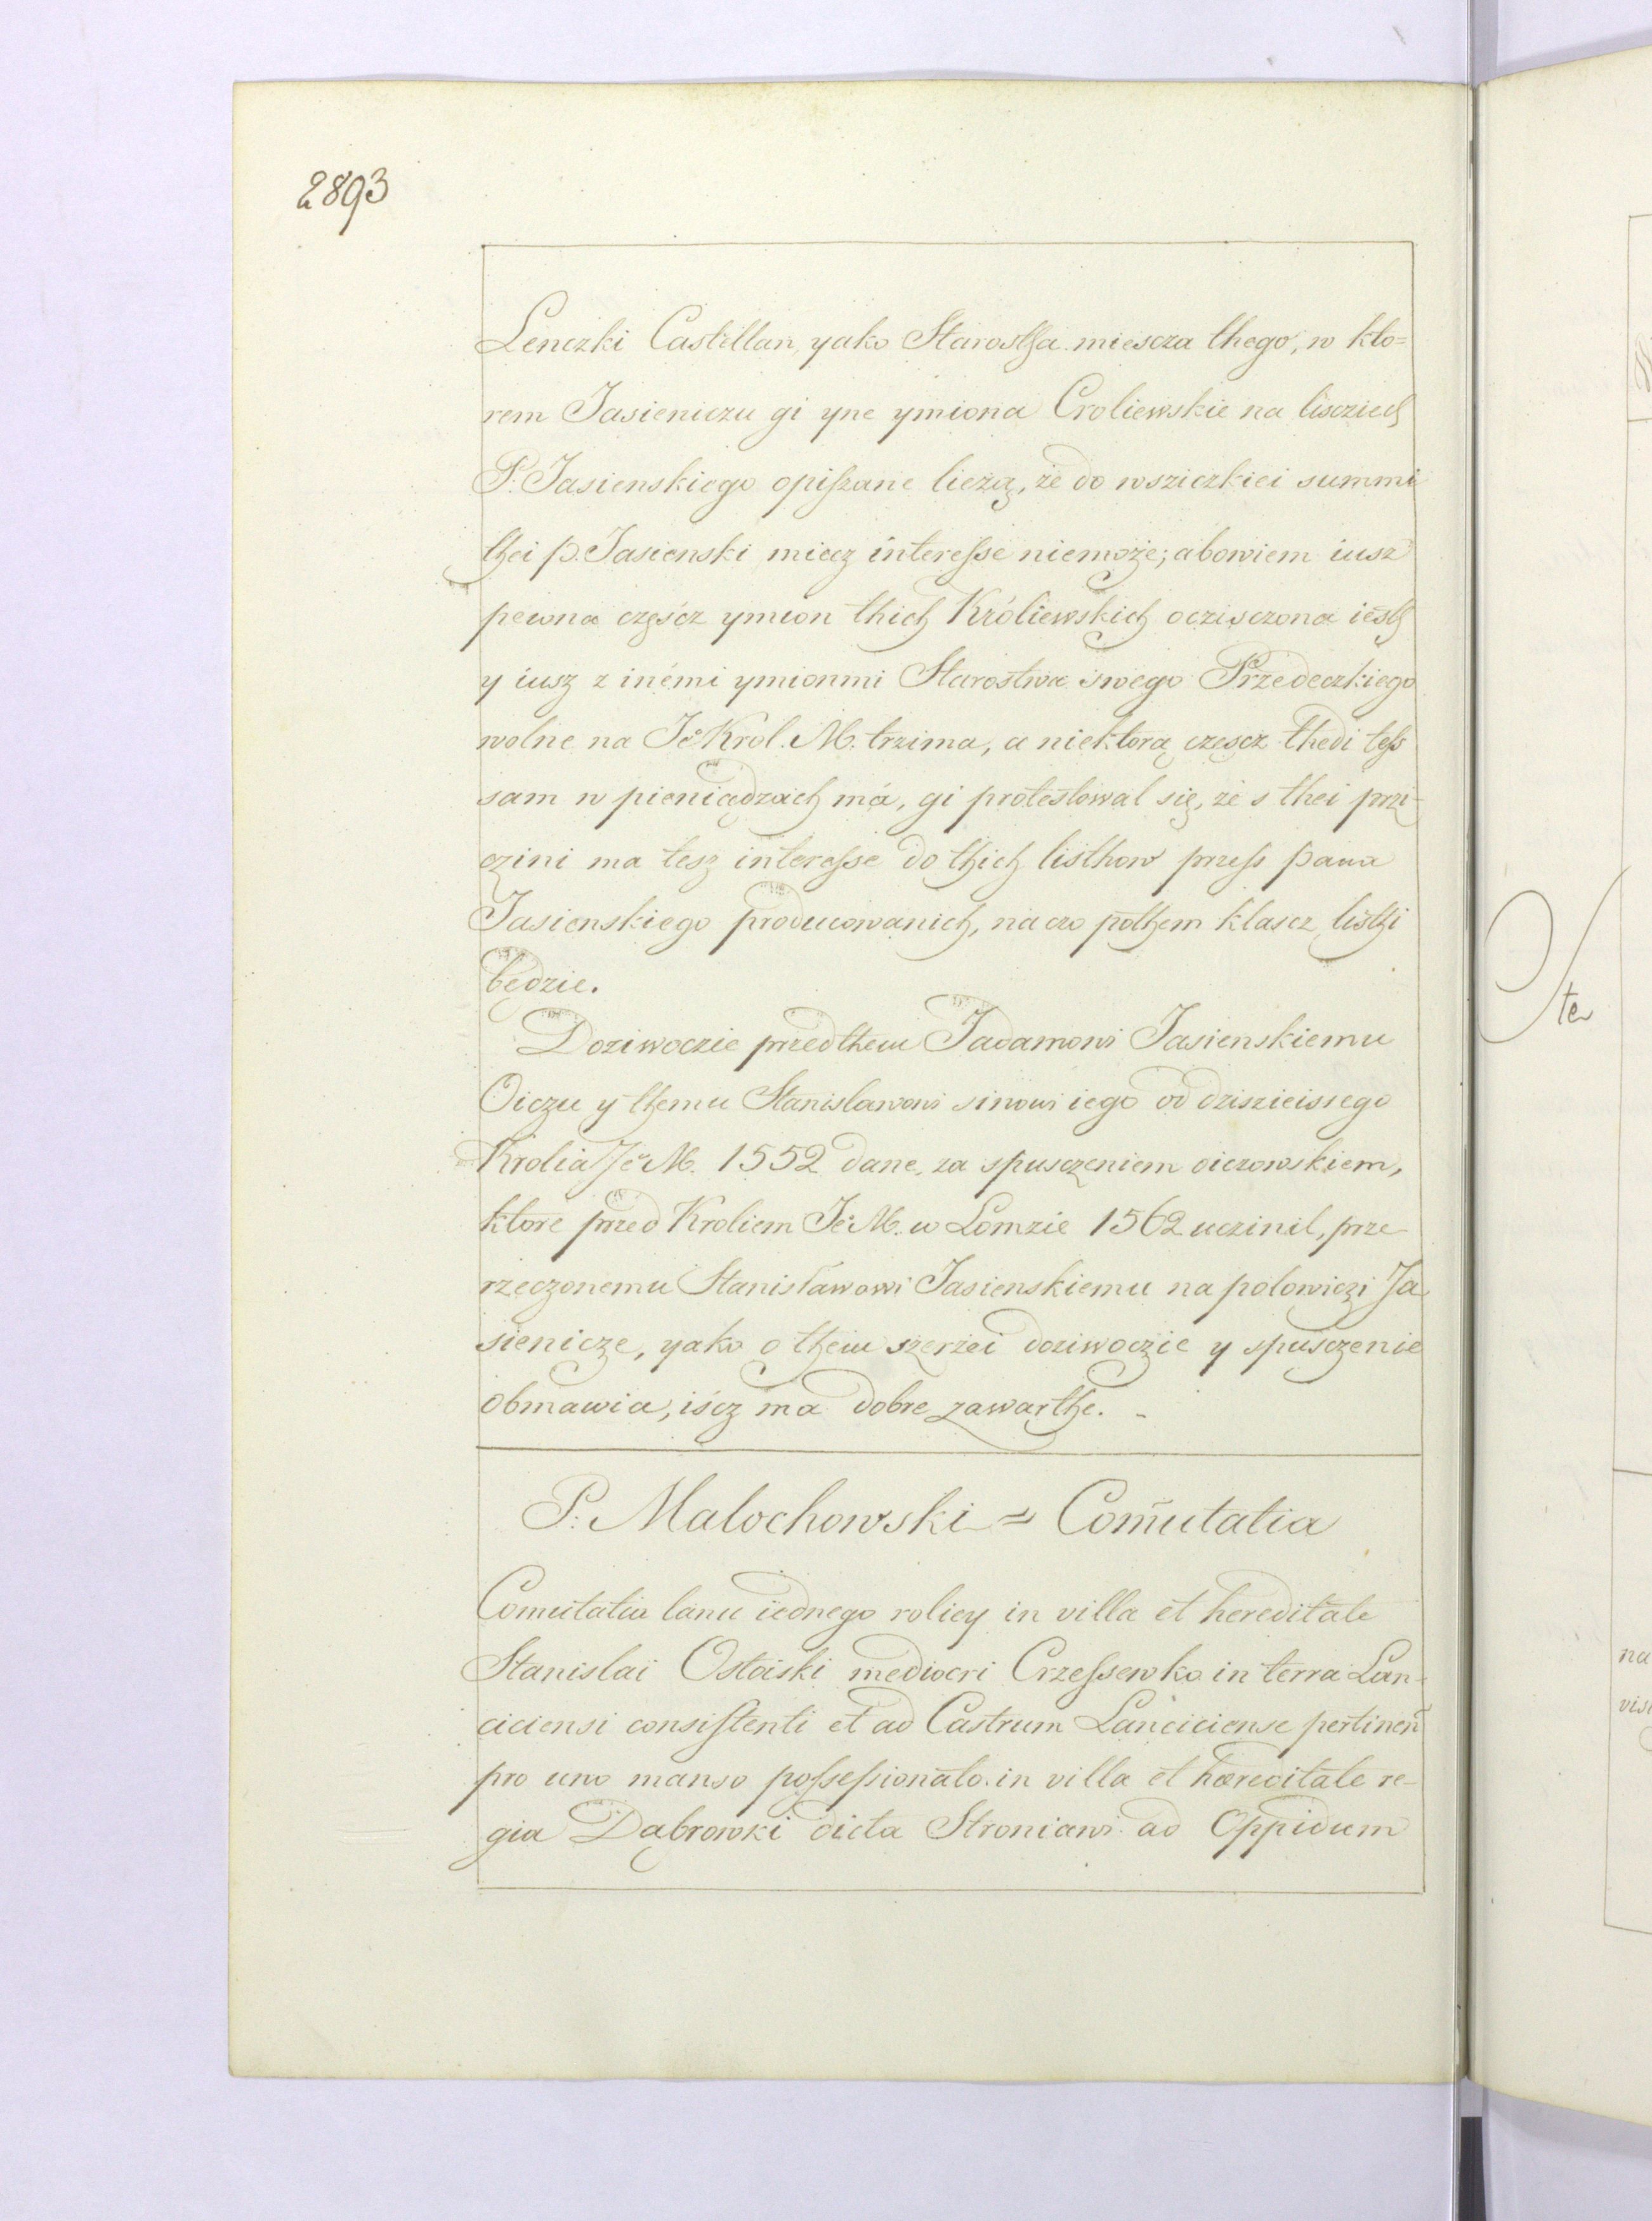 2893
Lenczki Castellan, yako Starostha miescza thego, w kto=
rem Jasieniczu gi yne ymiona Croliewskie na liscziech
P. Jasienskiego opißane lieżą, że do wsziczkiei summi
thei p. Jasienski miecz interesse niemoże; abowiem iusz
pewna częścz ymion thich Króliewskich ocziszczona iesth
y iusz z inémi ymionmi Starostwa swego Przedeczkiego
wolne na Je° Krol. M. trzima, a niektorą czescz thedi teß
sam w pieniądzach má, gi protestowal się, że s thei przi-
czini ma tesz interesse do thich listhow przeß pana
Jasienskiego producowanich, na czo pothem klascz listhi
będzie.
Doziwoczie przedthem Jadamowi Jasienskiemu
Oiczu y themu Stanislawowi sinowi iego od dziszieissego
Krolia Je° M. 1552 dane, za spusczeniem oiczowskiem,
ktore przed Kroliem Je° M. w Lomzie 1562 uczinil, prze
rzeczonemu Stanisławowi Jasienskiemu na polowiczi Ja
sienicze, yako o them szerzei doziwoczie y spusczenie
obmawia, iścz ma dobre zawarthe.
P. Malochowski = Com̃utatia
Comutatia lanu iednego roliey in villa et hereditate
Stanislai Ostoiski mediocri Crzessewko in terra Lan-
ciciensi consistenti et ad Castrum Lanciciense pertineñ
pro uno manso possessionato in villa et hœreditate re-
gia Dąbrowki dicta Stroniawi ad Oppidum
te
na